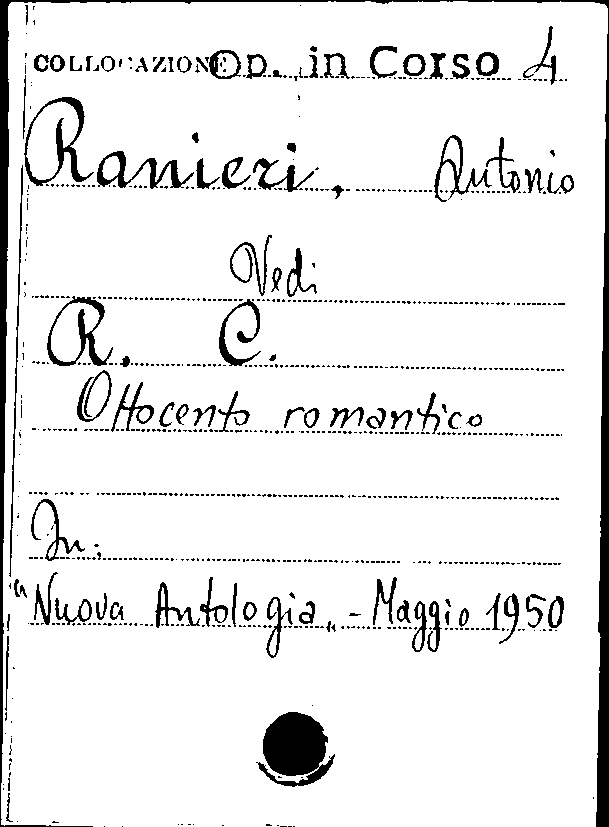 COLLOCAZIONE Op. in Corso 4
Ranieri, Antonio
Vedi
R. C.
Ottocento romantico
In:
"Nuova Antologia" - Maggio 1950